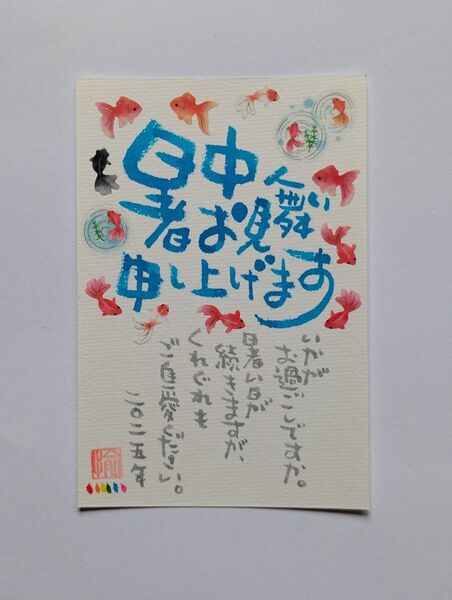 暑中
お見舞い
申し上げます
いかが
お過ごしですか。
暑い日が
続きますが、
くれぐれも
ご自愛ください。
二〇二五年